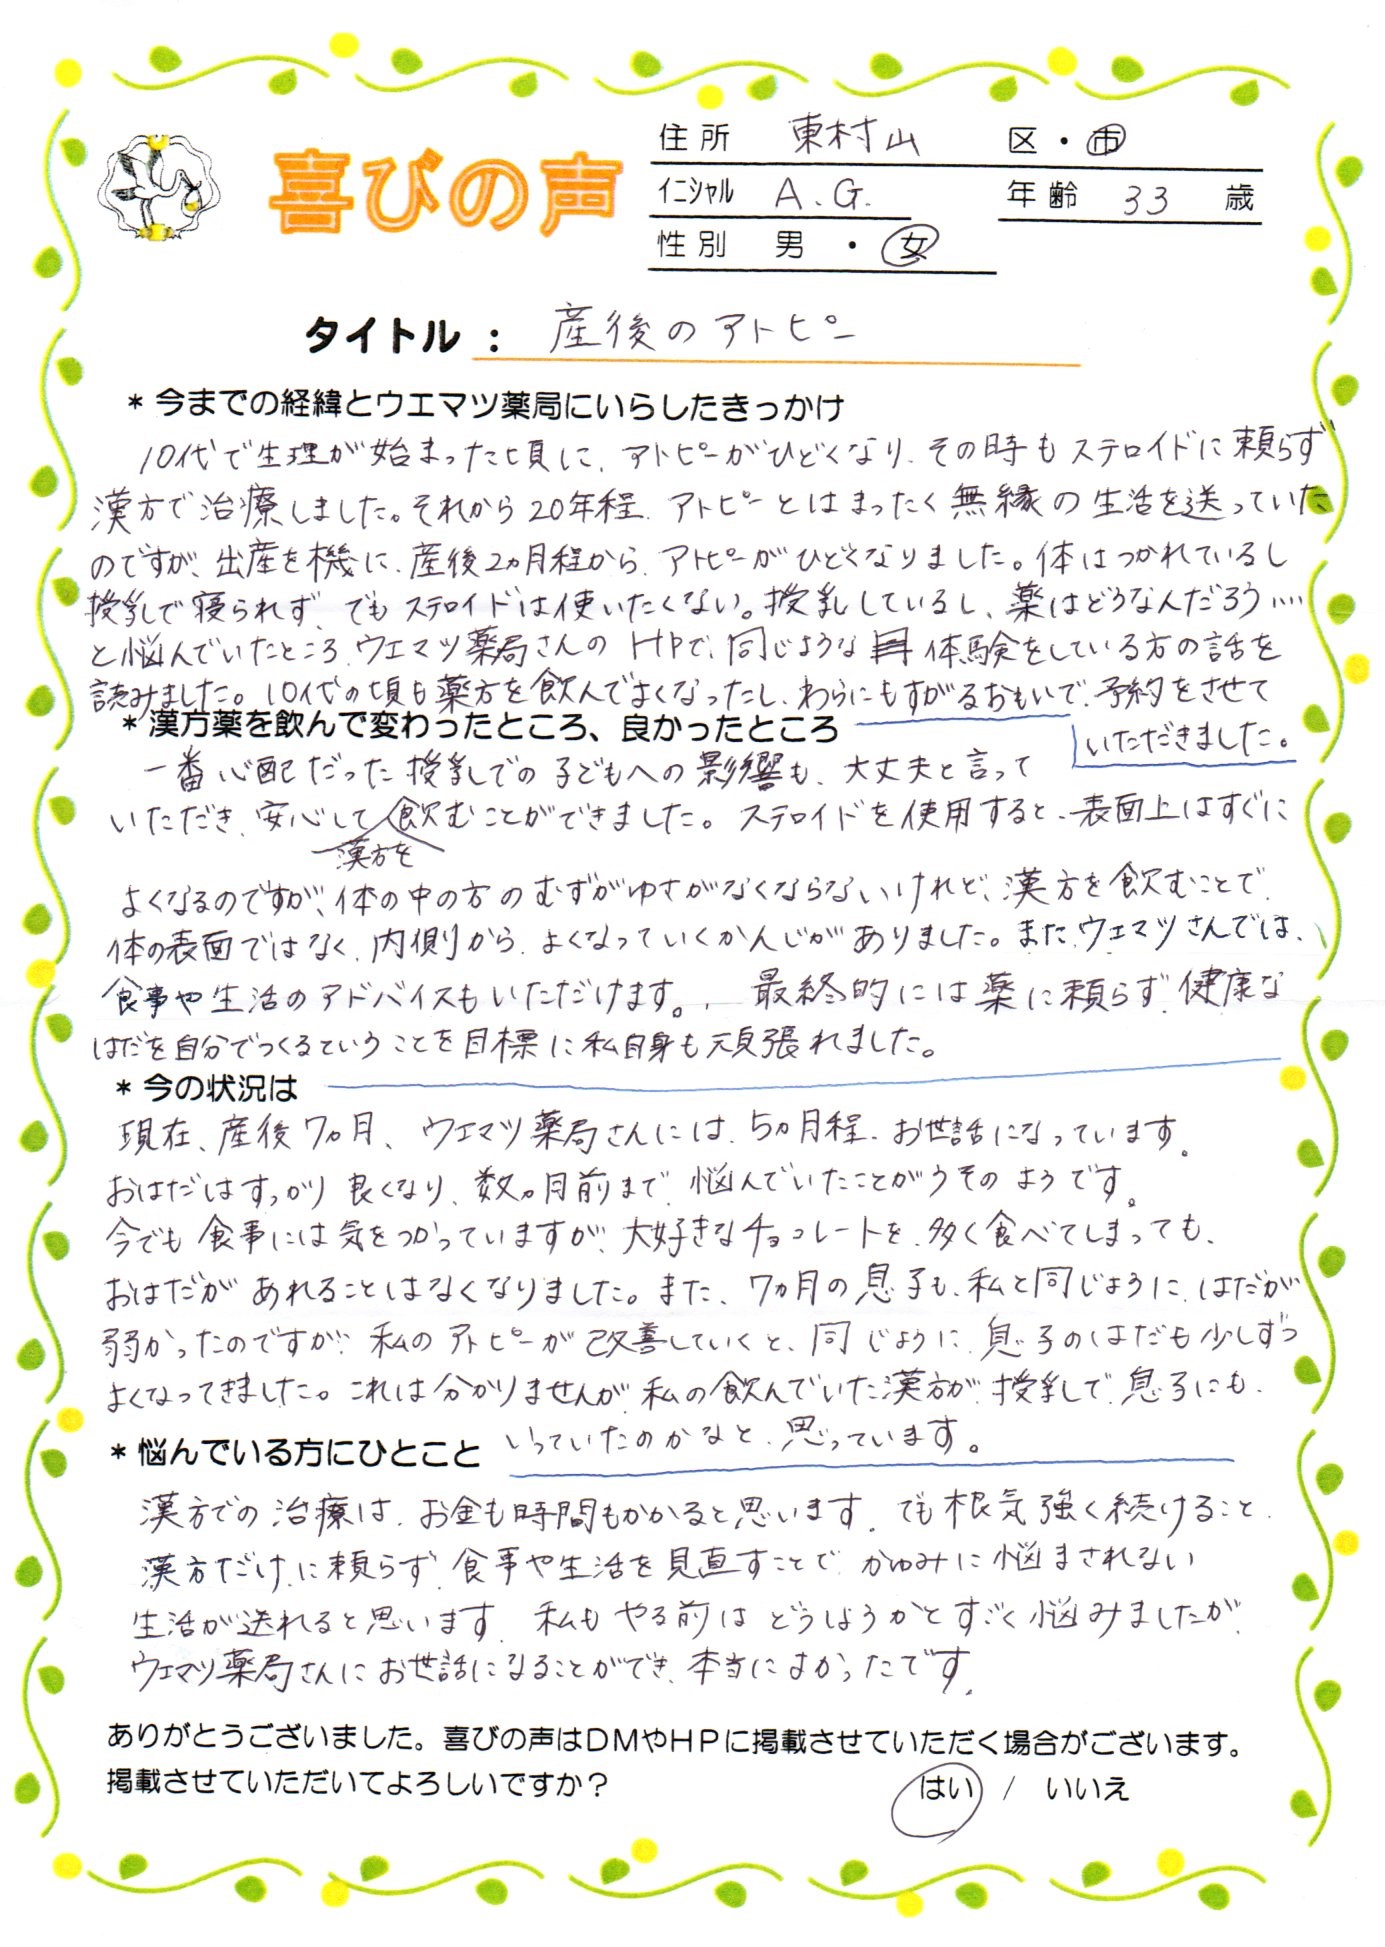 喜びの声
住所 東村山 区・市
イニシャル A.G. 年齢 33 歳
性別 男・女
タイトル： 産後のアトピー
＊今までの経緯とウエマツ薬局にいらしたきっかけ
10代で生理が始まった頃に、アトピーがひどくなり、その時もステロイドに頼らず
漢方で治療しました。それから20年程、アトピーとはまったく無縁の生活を送っていた
のですが、出産を機に、産後2ヵ月程から、アトピーがひどくなりました。体はつかれているし
授乳で寝られず、でもステロイドは使いたくない。授乳しているし、薬はどうなんだろう……
と悩んでいたところ、ウエマツ薬局さんのHPで、同じような体験をしている方の話を
読みました。10代の頃も薬方を飲んでよくなったし、わらにもすがるおもいで、予約をさせて
いただきました。
＊漢方薬を飲んで変わったところ、良かったところ
一番心配だった授乳での子どもへの影響も、大丈夫と言って
いただき、安心して漢方を飲むことができました。ステロイドを使用すると、表面上はすぐに
よくなるのですが、体の中の方のむずがゆさがなくならないけれど、漢方を飲むことで、
体の表面ではなく、内側から、よくなっていくかんじがありました。また、ウエマツさんでは、
食事や生活のアドバイスもいただけます。、最終的には薬に頼らず、健康な
はだを自分でつくるということを目標に私自身も頑張れました。
＊今の状況は
現在、産後7ヵ月、ウエマツ薬局さんには、5ヵ月程、お世話になっています。
おはだはすっかり良くなり、数ヵ月前まで、悩んでいたことがうそのようです。
今でも食事には気をつかっていますが、大好きなチョコレートを、多く食べてしまっても、
おはだがあれることはなくなりました。また、7ヵ月の息子も、私と同じように、はだが
弱かったのですが、私のアトピーが改善していくと、同じように、息子のはだも少しずつ
よくなってきました。これは分かりませんが、私の飲んでいた漢方が、授乳で、息子にも、
いっていたのかなと、思っています。
＊悩んでいる方にひとこと
漢方での治療は、お金も時間もかかると思います。でも根気強く続けること、
漢方だけに頼らず、食事や生活を見直すことで、かゆみに悩まされない
生活が送れると思います。私もやる前はどうしようかとすごく悩みましたが、
ウエマツ薬局さんにお世話になることができ、本当によかったです。
ありがとうございました。喜びの声はＤＭやＨＰに掲載させていただく場合がございます。
掲載させていただいてよろしいですか？ はい / いいえ